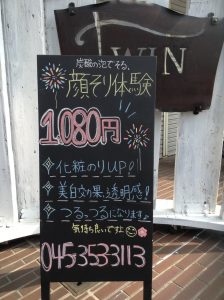 TWIN
炭酸の泡でそる、
顔そり体験
1,080円
化粧のりUP!
美白効果、透明感!
つるつるになります♪
気持ち良いですよ
0453533113